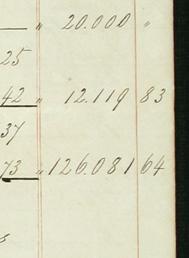 " 20.000 "
25
42 " 12.119 83
37
73 " 126.081 64
s